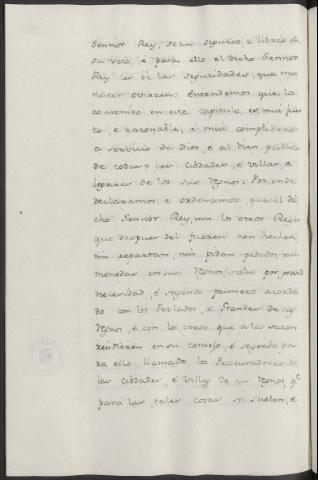 Sennor Rey, sean seguros, e libres en
su voto, e para ello el dicho Sennor
Rey les dé las seguridades, que me
nester ovieren: Entendemos que lo
contenido en este capitulo, es mui jus
to, é razonable, é mui complidero
a servicio de Dios, e al bien publico
de todas las Cibdades, é Villas, e
logares de los sus Regnos: Por ende
declaramos, e ordenamos, que el di
cho Sennor Rey, nin los otros Reyes
que despues del fueren non hechen,
nin repartan, nin pidan pedidos, nin
monedas en sus Regnos, salvo por grand
necesidad, é seyendo primero acorda
do con los Perlados, e Grandes de sus
Regnos, é con los otros, que a la sazon
residieren en su consejo, é seyendo pa
ra ello llamados los Procuradores de
las Cibdades, é Villas de sus Regnos, qe
para las tales cosas se suelen, e